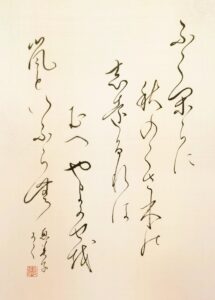 ふくからに
秋のくさ木の
志をるれは
むへやまかせを
嵐といふらむ